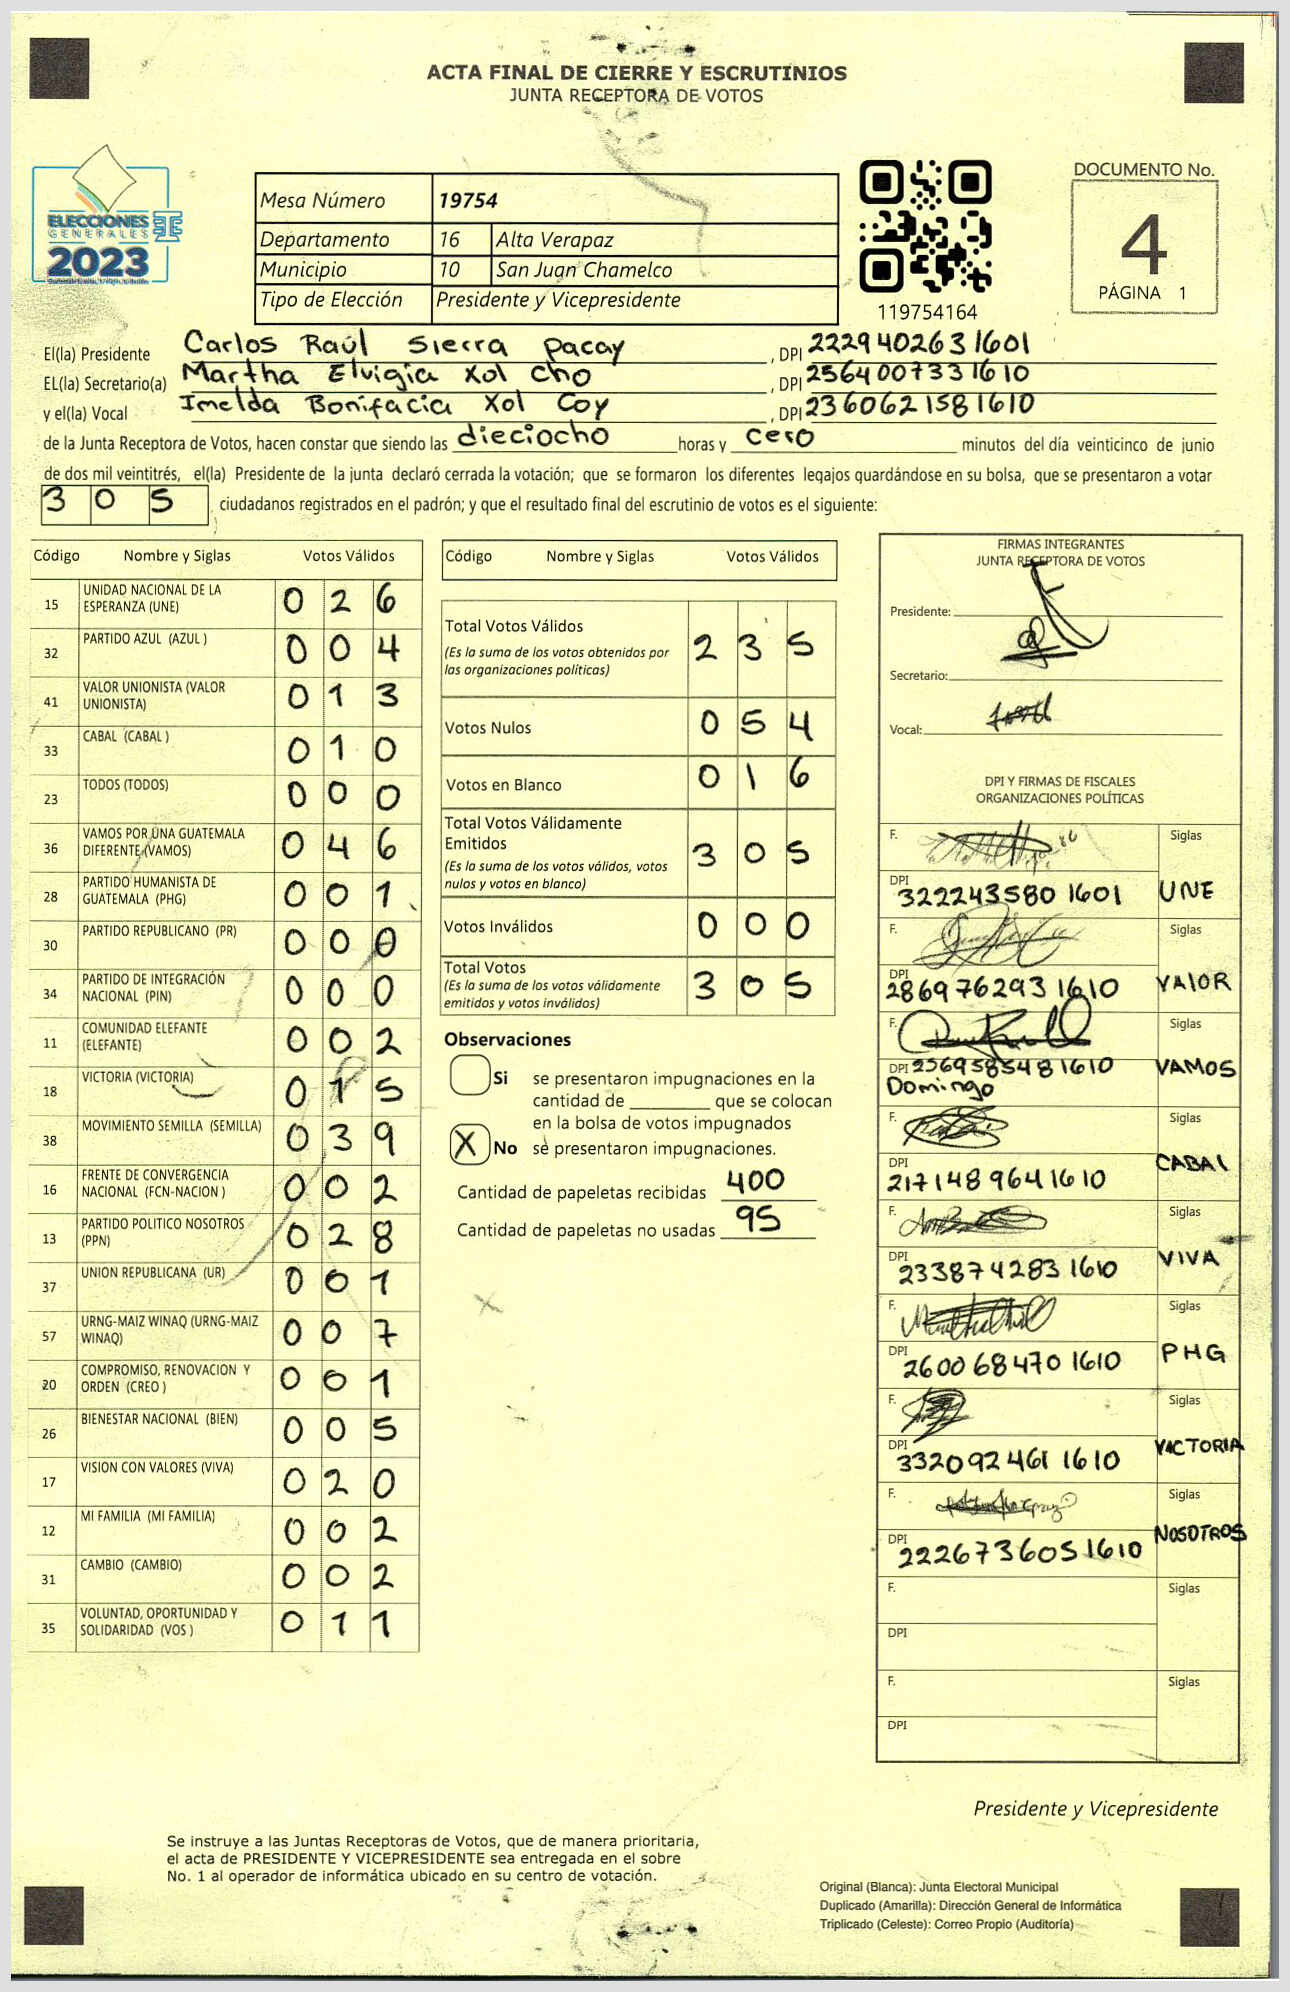 ACTA FINAL DE CIERRE Y ESCRUTINIOS
JUNTA RECEPTORA DE VOTOS
ELECCIONES
GENERALES
2023
Mesa Número 19754
Departamento 16 Alta Verapaz
Municipio 10 San Juan Chamelco
Tipo de Elección Presidente y Vicepresidente
119754164
DOCUMENTO No.
4
PÁGINA 1
El(la) Presidente Carlos Raúl Sierra Pacay, DPI 2229402631601
EL(la) Secretario(a) Martha Elvigia Xol Cho, DPI 2564007331610
y el(la) Vocal Imelda Bonifacia Xol Coy, DPI 2360621581610
de la Junta Receptora de Votos, hacen constar que siendo las dieciocho horas y cero minutos del día veinticinco de junio
de dos mil veintitrés, el(la) Presidente de la junta declaró cerrada la votación; que se formaron los diferentes legajos guardándose en su bolsa, que se presentaron a votar
305 ciudadanos registrados en el padrón; y que el resultado final del escrutinio de votos es el siguiente:
Código Nombre y Siglas Votos Válidos
15 UNIDAD NACIONAL DE LA ESPERANZA (UNE) 026
32 PARTIDO AZUL (AZUL ) 004
41 VALOR UNIONISTA (VALOR UNIONISTA) 013
33 CABAL (CABAL ) 010
23 TODOS (TODOS) 000
36 VAMOS POR UNA GUATEMALA DIFERENTE (VAMOS) 046
28 PARTIDO HUMANISTA DE GUATEMALA (PHG) 001
30 PARTIDO REPUBLICANO (PR) 000
34 PARTIDO DE INTEGRACIÓN NACIONAL (PIN) 000
11 COMUNIDAD ELEFANTE (ELEFANTE) 002
18 VICTORIA (VICTORIA) 015
38 MOVIMIENTO SEMILLA (SEMILLA) 039
16 FRENTE DE CONVERGENCIA NACIONAL (FCN-NACION ) 002
13 PARTIDO POLITICO NOSOTROS (PPN) 028
37 UNION REPUBLICANA (UR) 001
57 URNG-MAIZ WINAQ (URNG-MAIZ WINAQ) 007
20 COMPROMISO, RENOVACION Y ORDEN (CREO ) 001
26 BIENESTAR NACIONAL (BIEN) 005
17 VISION CON VALORES (VIVA) 020
12 MI FAMILIA (MI FAMILIA) 002
31 CAMBIO (CAMBIO) 002
35 VOLUNTAD, OPORTUNIDAD Y SOLIDARIDAD (VOS ) 011
Código Nombre y Siglas Votos Válidos
Total Votos Válidos 235
(Es la suma de los votos obtenidos por
las organizaciones políticas)
Votos Nulos 054
Votos en Blanco 016
Total Votos Válidamente
Emitidos 305
(Es la suma de los votos válidos, votos
nulos y votos en blanco)
Votos Inválidos 000
Total Votos 305
(Es la suma de los votos válidamente
emitidos y votos inválidos)
Observaciones
Si se presentaron impugnaciones en la
cantidad de ________ que se colocan
en la bolsa de votos impugnados
X No se presentaron impugnaciones.
Cantidad de papeletas recibidas 400
Cantidad de papeletas no usadas 95
FIRMAS INTEGRANTES
JUNTA RECEPTORA DE VOTOS
Presidente:
Secretario:
Vocal:
DPI Y FIRMAS DE FISCALES
ORGANIZACIONES POLÍTICAS
F. Siglas
DPI 3222435801601 UNE
F. Siglas
DPI 2869762931610 VALOR
F. Siglas
DPI 2569585481610 VAMOS
Domingo
F. Siglas
DPI 2171489641610 CABAL
F. Siglas
DPI 2338742831610 VIVA
F. Siglas
DPI 2600684701610 PHG
F. Siglas
DPI 3320924611610 VICTORIA
F. Siglas
DPI 2226736051610 NOSOTROS
F. Siglas
DPI
F. Siglas
DPI
Presidente y Vicepresidente
Se instruye a las Juntas Receptoras de Votos, que de manera prioritaria,
el acta de PRESIDENTE Y VICEPRESIDENTE sea entregada en el sobre
No. 1 al operador de informática ubicado en su centro de votación.
Original (Blanca): Junta Electoral Municipal
Duplicado (Amarilla): Dirección General de Informática
Triplicado (Celeste): Correo Propio (Auditoría)